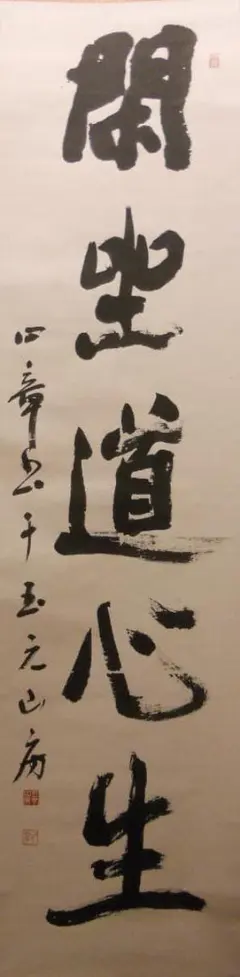 閑坐道心生
心章書于玉元山房